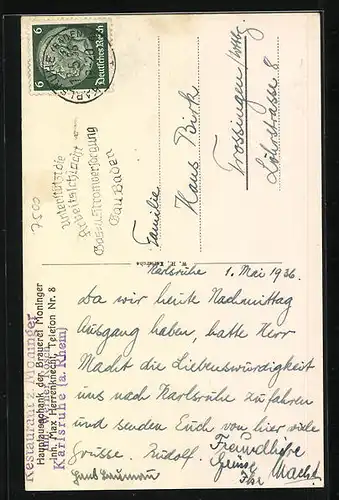 6
Deutsches Reich
6
KARLSRUHE (BADEN)
7500
Unterstützt die
Arbeitsschlacht
Gas u. Stromversorgung
Gau Baden
Familie
Hans Birk
Trossingen/Wttbg
Löhrstrasse 8
W. H.
Restaurant z. Moninger
Hauptausschank der Brauerei Moninger
Inh. Max Herrenknecht, Telefon Nr. 8
Karlsruhe (a. Rhein)
Karlsruhe 1. Mai 1936.
Da wir heute Nachmittag
Ausgang haben, hatte Herr
Macht die Liebenswürdigkeit
uns nach Karlsruhe zu fahren
und senden Euch von hier viele
Grüsse. Rudolf. Freundliche
Grüsse
Macht